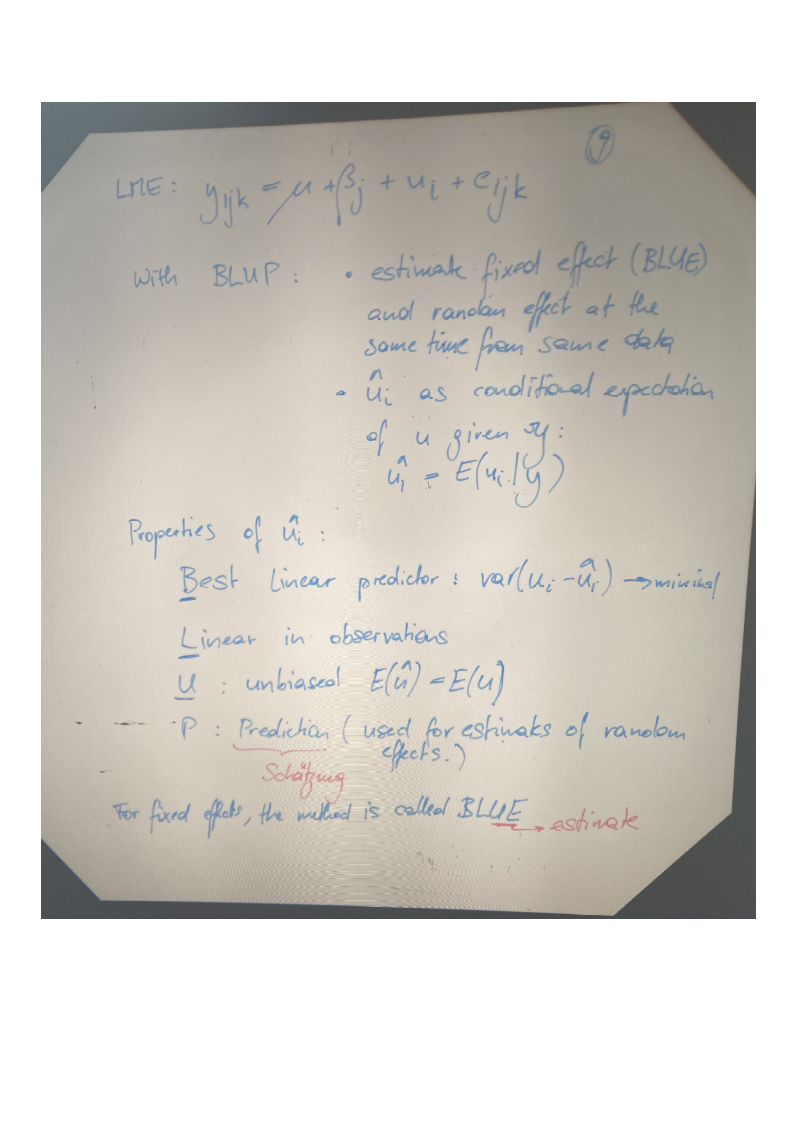 9
LME: yijk = μ + βj + ui + eijk
With BLUP: • estimate fixed effect (BLUE)
and random effect at the
same time from same data
• ûi as conditional expectation
of u given y:
ûi = E(ui|y)
Properties of ûi:
Best linear predictor: var(ui - ûi) → minimal
Linear in observations
U : unbiased E(û) = E(u)
P : Prediction (used for estimates of random
effects.)
Schätzung
For fixed effects, the method is called BLUE
→ estimate